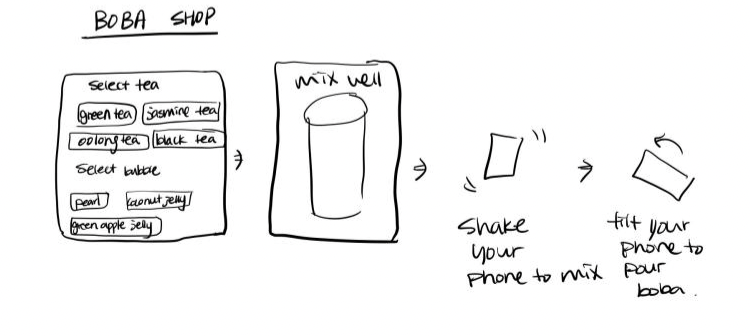 BOBA SHOP
Select tea
green tea
jasmine tea
oolong tea
black tea
Select bubble
pearl
coconut jelly
green apple jelly
mix well
shake
your
phone to mix
tilt your
phone to
pour
boba.